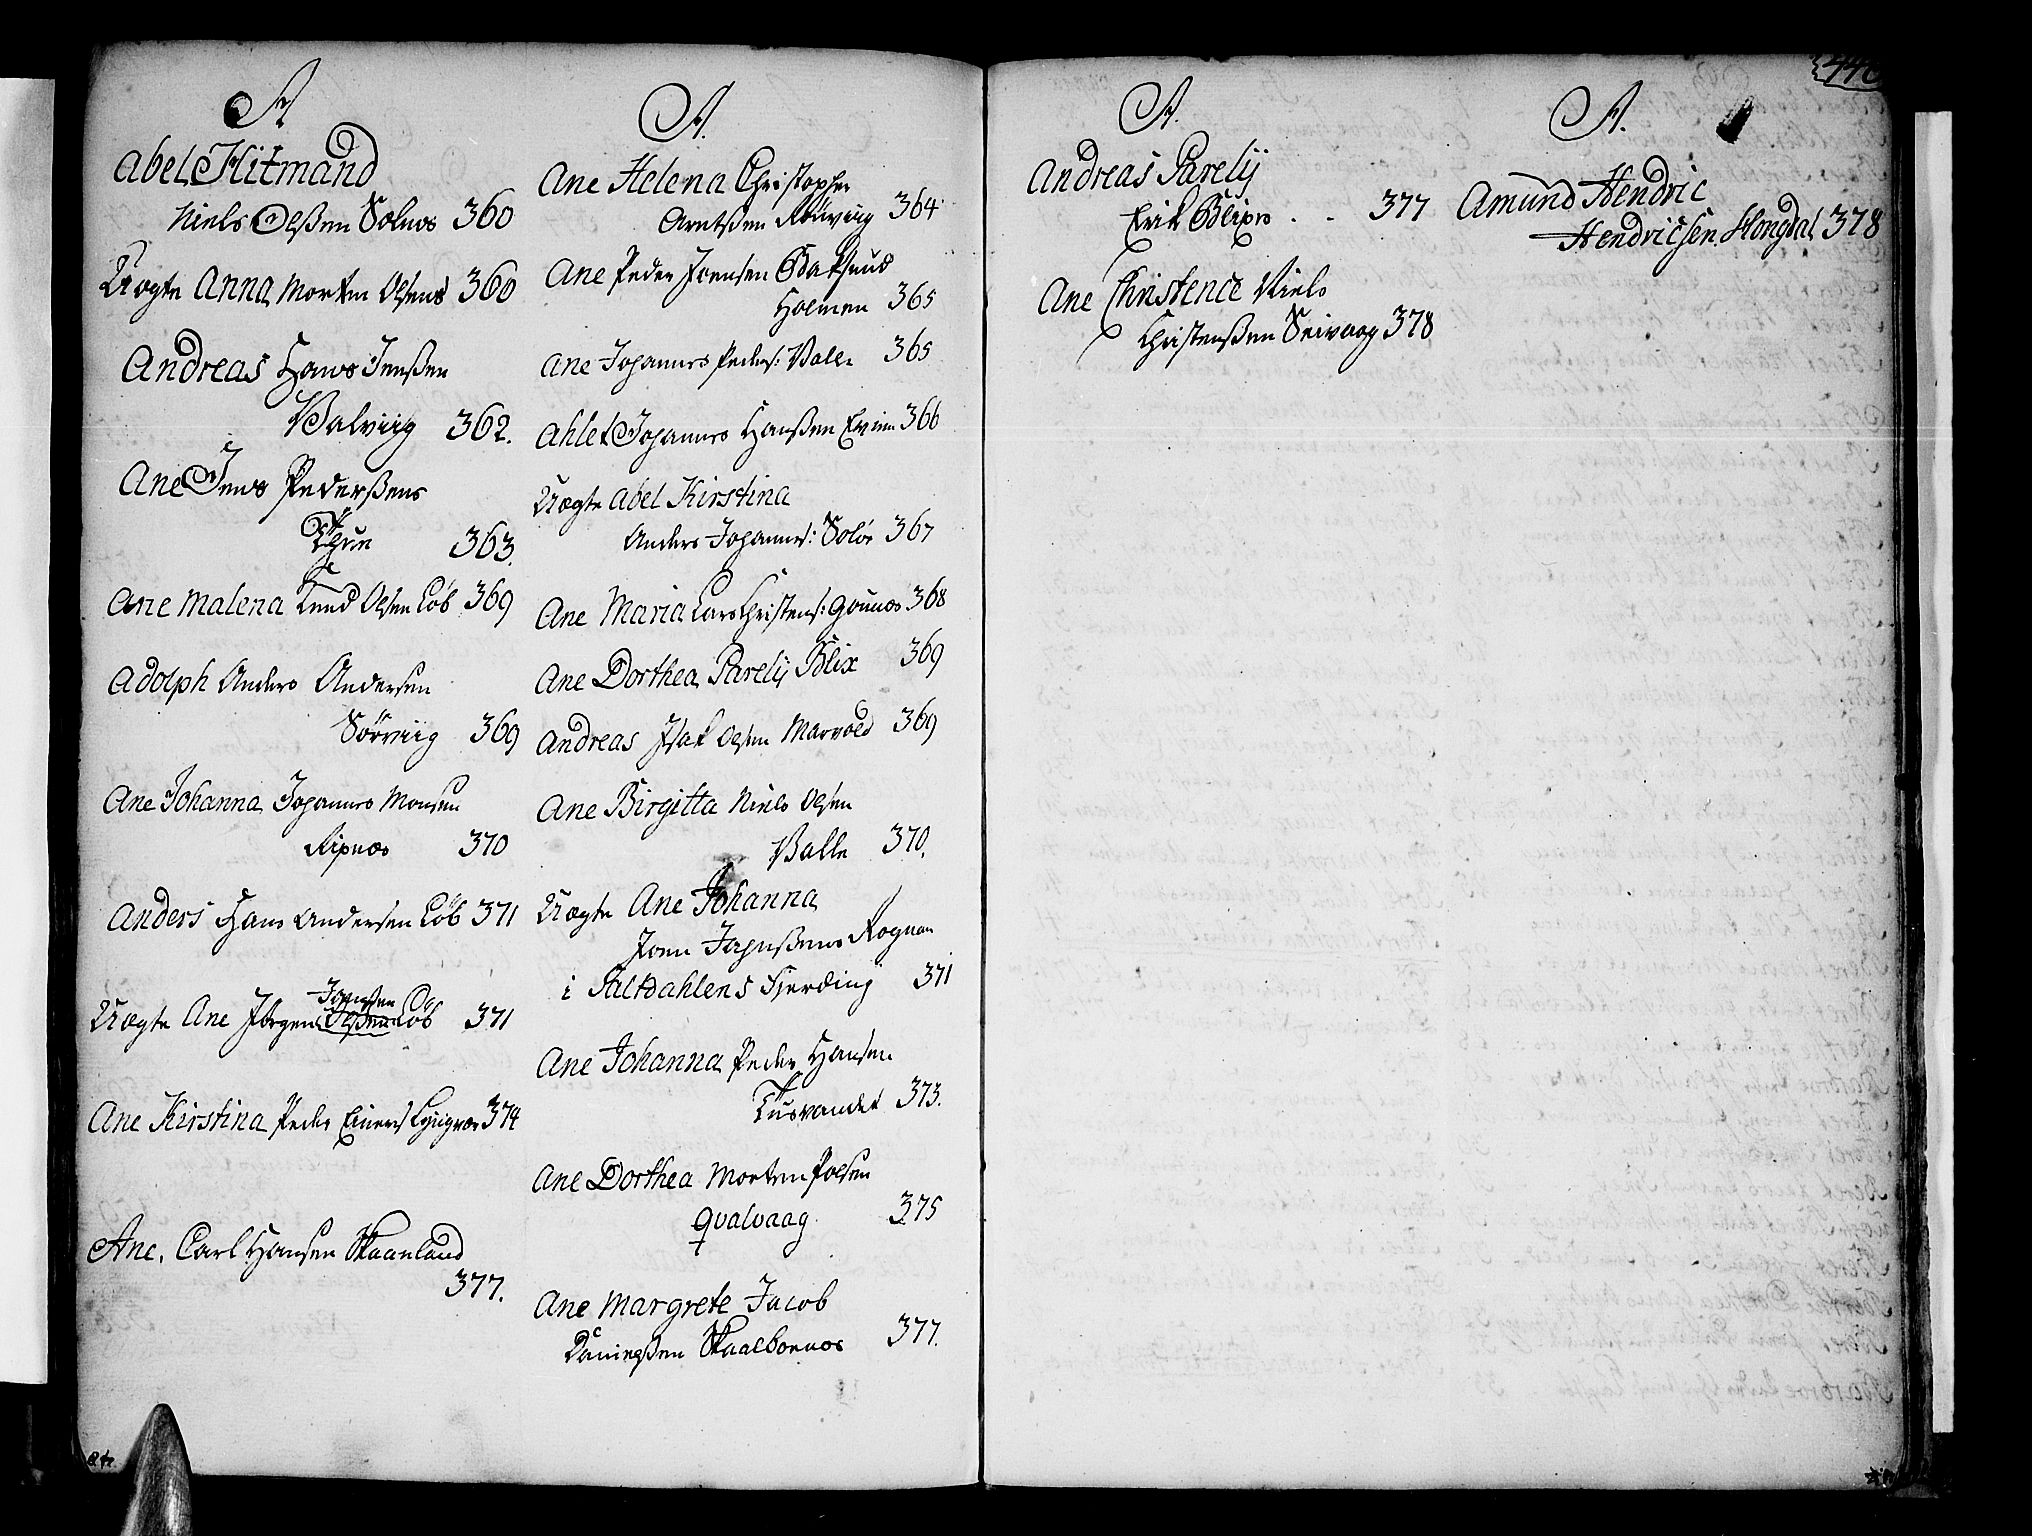 A
Abel Hitmand
Niels Olßen Solnæs 360
Uægte Anna Morten Olsens 360
Andreas Hans Jenßen
Valviig 362.
Ane Jens Pederßens
363.
Ane Malena Knud Olsen Løb 369
Adolph Anders Andersen
Sörviig 369
Ane Johanna Johannes Monsen
Ripnæs 370
Anders Hans Andersen Løb 371
Jonsßen
Uægte Ane Jörgen Olßen Løb 371
Ane Kirstina Peder Einers Lyngvær 374
Ane. Carl Hansen Skaanland
377.
A.
Ane Helena Christopher
Arntßen Röviig 364
Ane Peder Jensen Baksund
Holmen 365
Ane Johannes Peders: Valle 365
Ahlet Johannes Hanßen 366
Uægte Abel Kirstina
Anders Johannes: Solöe 367
Ane Maria Lars Christens: 368
Ane Dorthea Parelÿ Blix 369
Andreas Isak Olsen Marvold 369
Ane Birgitta Niels Olsen
Valle 370.
Uægte Ane Johanna
Rognan
i Saltdahlens Fjerding 371
Ane Johanna Peder Hansen
Tusvandet 373.
Ane Dorthea Morten Polsen
Qvalvaag 375
Ane Margrete Jacob
Skaalbonæs 377.
A.
Andreas Parelÿ
Erik Blixes . . 377
Ane Christence Niels
Christenßen Seivaag 378
A.
Amund Hendric
Hendricsen Hongdal 378